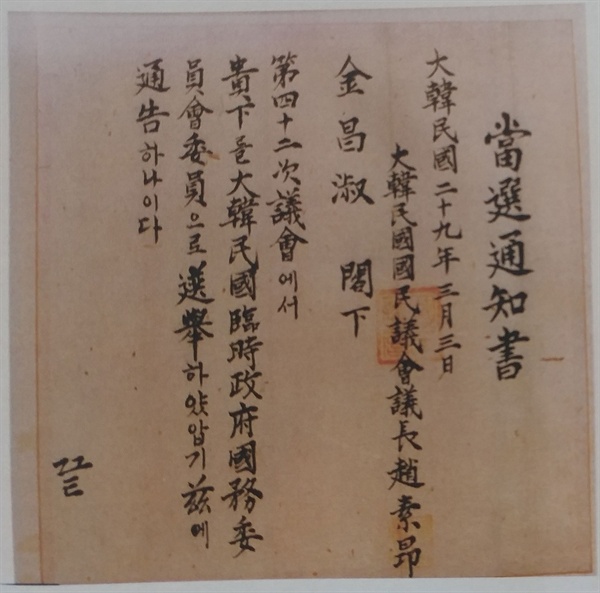 當選通知書
大韓民國二十九年三月三日
大韓民國國民議會議長趙素昻
金昌淑 閣下
第四十二次議會에서
貴下를大韓民國臨時政府國務委
員會委員으로選擧하얏압기玆에
通告하나이다
끝